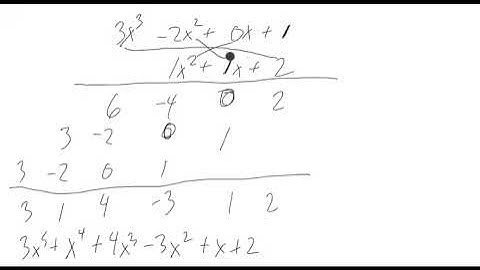 3x³ -2x² + 0x + 1
1x² + 1x + 2
6 -4 0 2
3 -2 0 1
3 -2 0 1
3 1 4 -3 1 2
3x⁵ + x⁴ + 4x³ - 3x² + x + 2